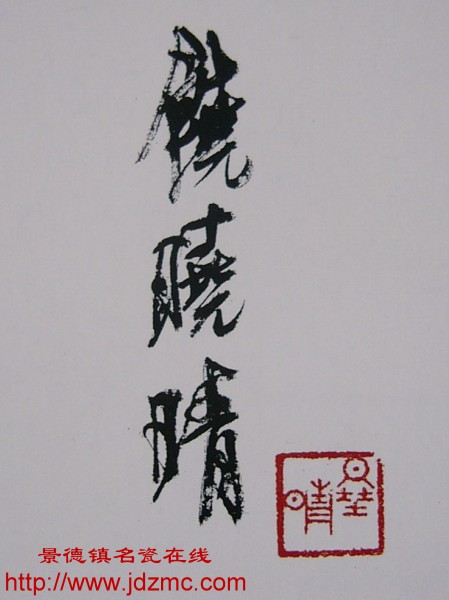 饒曉晴
晴
景德镇名瓷在线
http://www.jdzmc.com